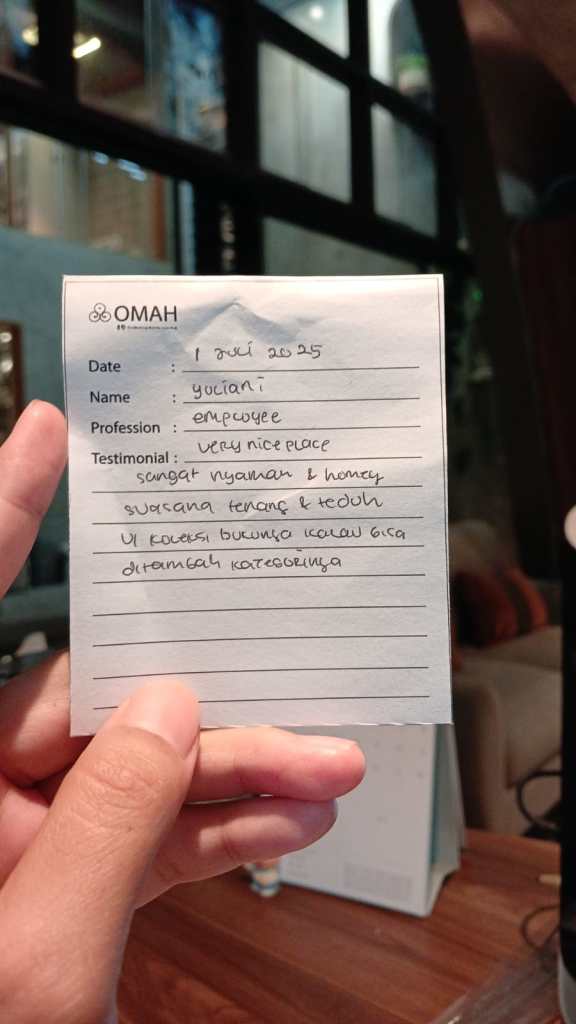 OMAH
Date : 1 Juli 2025
Name : yuliani
Profession : employee
Testimonial : very nice place
sangat nyaman & homey
suasana tenang & teduh
U/ koleksi bukunya kalau bisa
ditambah kategorinya